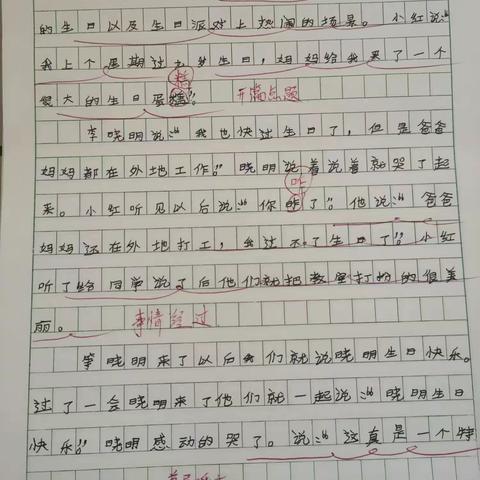 的生日以及生日派对上热闹的场景。小红说:"
我上个星期过了生日,妈妈给我买了一个
糕
很大的生日蛋糕"。 开篇点题
李晓明说:"我也快过生日了,但是爸爸
妈妈都在外地工作"。晓明说着说着就哭了起
来。小红听见以后说:"你咋了"。他说:"爸爸
妈妈还在外地打工,过不了生日了"。小红
听了给同学说了后他们就把教室打扮的很美
丽。 事情经过
等晓明来了以后我们就说晓明生日快乐。
过了一会晓明来了他们就一起说:"晓明生日
快乐"。晓明感动的哭了。说:"这真是一个特